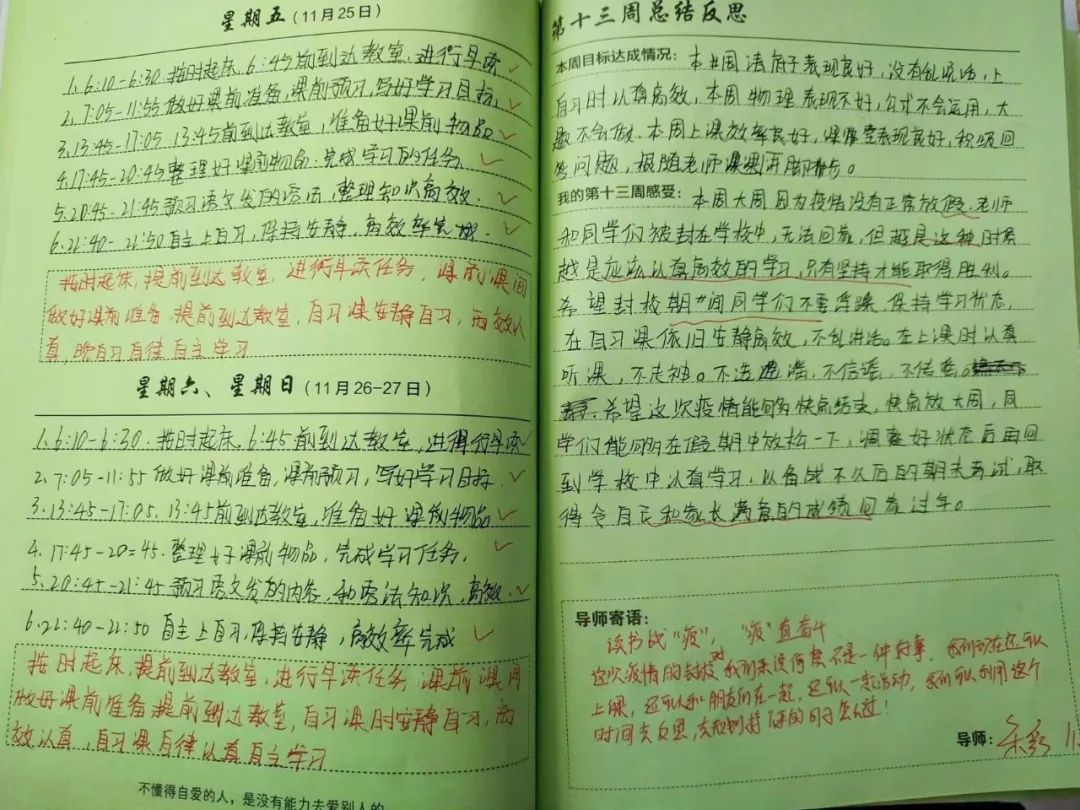 星期五（11月25日）
1、6:10-6:30 按时起床 6:45前到达教室，进行早读
2、7:05-11:55 做好课前准备，课前预习，写好学习目标，
3、13:45-17:05. 13:45前到达教室，准备好课前物品
4、17:45-20:45 整理好课前物品，完成学习的任务
5、20:45-21:45 预习语文发的语法，整理知识高效.
6、21:40-21:50 自主上自习，保持安静，高效率完成.
按时起床，提前到达教室，进行早读任务，课前课间
做好课前准备，提前到达教室，自习课安静自习，高效认
真，晚自习自律自主学习
星期六、星期日（11月26-27日）
1、6:10-6:30. 按时起床，6:45前到达教室，进行早读
2、7:05-11:55 做好课前准备，课前预习，写好学习目标.
3、13:45-17:05. 13:45前到达教室，准备好课前物品
4、17:45-20:45. 整理好课前物品，完成学习任务.
5、20:45-21:45 预习语文发的内容，和语法知识，高效.
6、21:40-21:50 自主上自习，保持安静，高效率完成
按时起床，提前到达教室，进行早读任务，课前课间
做好课前准备提前到达教室，自习课时安静自习，高
效认真，自习课自律认真自主学习
不懂得自爱的人，是没有能力去爱别人的
第十三周总结反思
本周目标达成情况：本周纪律表现良好，没有乱说话，上
自习时认真高效，本周物理表现不好，公式不会运用，大
题不会做. 本周上课效率良好，课堂表现良好，积极回
答问题，跟随老师课堂脚步。
我的第十三周感受：本周大周因为疫情没有正常放假，老师
和同学们被封在学校中，无法回家，但越是这种时候
越是应该认真高效的学习，只有坚持才能取得胜利。
希望封校期间同学们不要浮躁，保持学习状态，
在自习课依旧安静高效，不乱讲话。在上课时认真
听课，不走神。不造谣，不信谣，不传谣。
希望这次疫情能够快点结束，快点放大周，同
学们能够在假期中放松一下，调整好状态后再回
到学校中认真学习，以备战不久后的期末考试，取
得令自己和家长满意的成绩回家过年。
导师寄语：
读书战“疫”，“疫”直奋斗
这次疫情的封校对我们来说何尝不是一件好事，我们现在还可以
上课，还可以和朋友们在一起，还可以一起活动，我们可以利用这个
时间去反思，去规划接下来的日子怎么过！
导师：